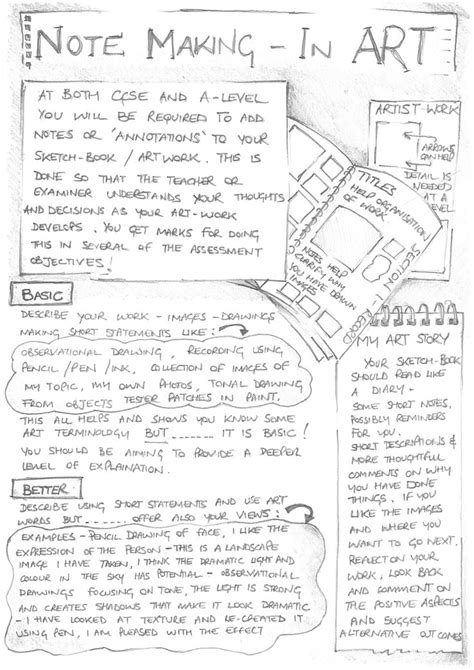 NOTE MAKING - IN ART
AT BOTH GCSE AND A-LEVEL
YOU WILL BE REQUIRED TO ADD
NOTES OR 'ANNOTATIONS' TO YOUR
SKETCH-BOOK / ARTWORK. THIS IS
DONE SO THAT THE TEACHER OR
EXAMINER UNDERSTANDS YOUR THOUGHTS
AND DECISIONS AS YOUR ART-WORK
DEVELOPS. YOU GET MARKS FOR DOING
THIS IN SEVERAL OF THE ASSESSMENT
OBJECTIVES!
ARTIST-WORK
ARROWS
CAN HELP
DETAIL IS
NEEDED
AT A
LEVEL
TITLES
HELP ORGANISATION
OF WORK
NOTES HELP
CLARIFY WHY
YOU HAVE DRAWN
IMAGES
SECTION
RECORD
BASIC
DESCRIBE YOUR WORK - IMAGES - DRAWINGS
MAKING SHORT STATEMENTS LIKE:
OBSERVATIONAL DRAWING, RECORDING USING
PENCIL/PEN/INK, COLLECTION OF IMAGES OF
MY TOPIC, MY OWN PHOTOS, TONAL DRAWING
FROM OBJECTS TESTER PATCHES IN PAINT.
THIS ALL HELPS AND SHOWS YOU KNOW SOME
ART TERMINOLOGY BUT ..... IT IS BASIC!
YOU SHOULD BE AIMING TO PROVIDE A DEEPER
LEVEL OF EXPLAINATION.
BETTER
DESCRIBE USING SHORT STATEMENTS AND USE ART
WORDS BUT ..... OFFER ALSO YOUR VIEWS:
EXAMPLES - PENCIL DRAWING OF FACE, I LIKE THE
EXPRESSION OF THE PERSON - THIS IS A LANDSCAPE
IMAGE I HAVE TAKEN, I THINK THE DRAMATIC LIGHT AND
COLOUR IN THE SKY HAS POTENTIAL - OBSERVATIONAL
DRAWINGS FOCUSING ON TONE, THE LIGHT IS STRONG
AND CREATES SHADOWS THAT MAKE IT LOOK DRAMATIC
- I HAVE LOOKED AT TEXTURE AND RE-CREATED IT
USING PEN, I AM PLEASED WITH THE EFFECT
MY ART STORY
YOUR SKETCH-BOOK
SHOULD READ LIKE
A DIARY -
SOME SHORT NOTES,
POSSIBLY REMINDERS
FOR YOU.
SHORT DESCRIPTIONS &
MORE THOUGHTFUL
COMMENTS ON WHY
YOU HAVE DONE
THINGS, IF YOU
LIKE THE IMAGES
AND WHERE YOU
WANT TO GO NEXT.
REFLECT ON YOUR
WORK, LOOK BACK
AND COMMENT ON
THE POSITIVE ASPECTS
AND SUGGEST
ALTERNATIVE OUT COMES